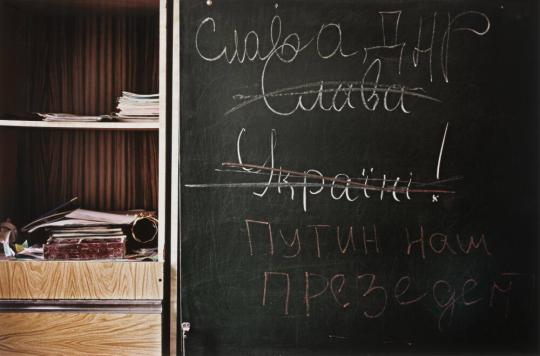 Слава ДНР
Слава
Україні!
Путин наш
Презедент